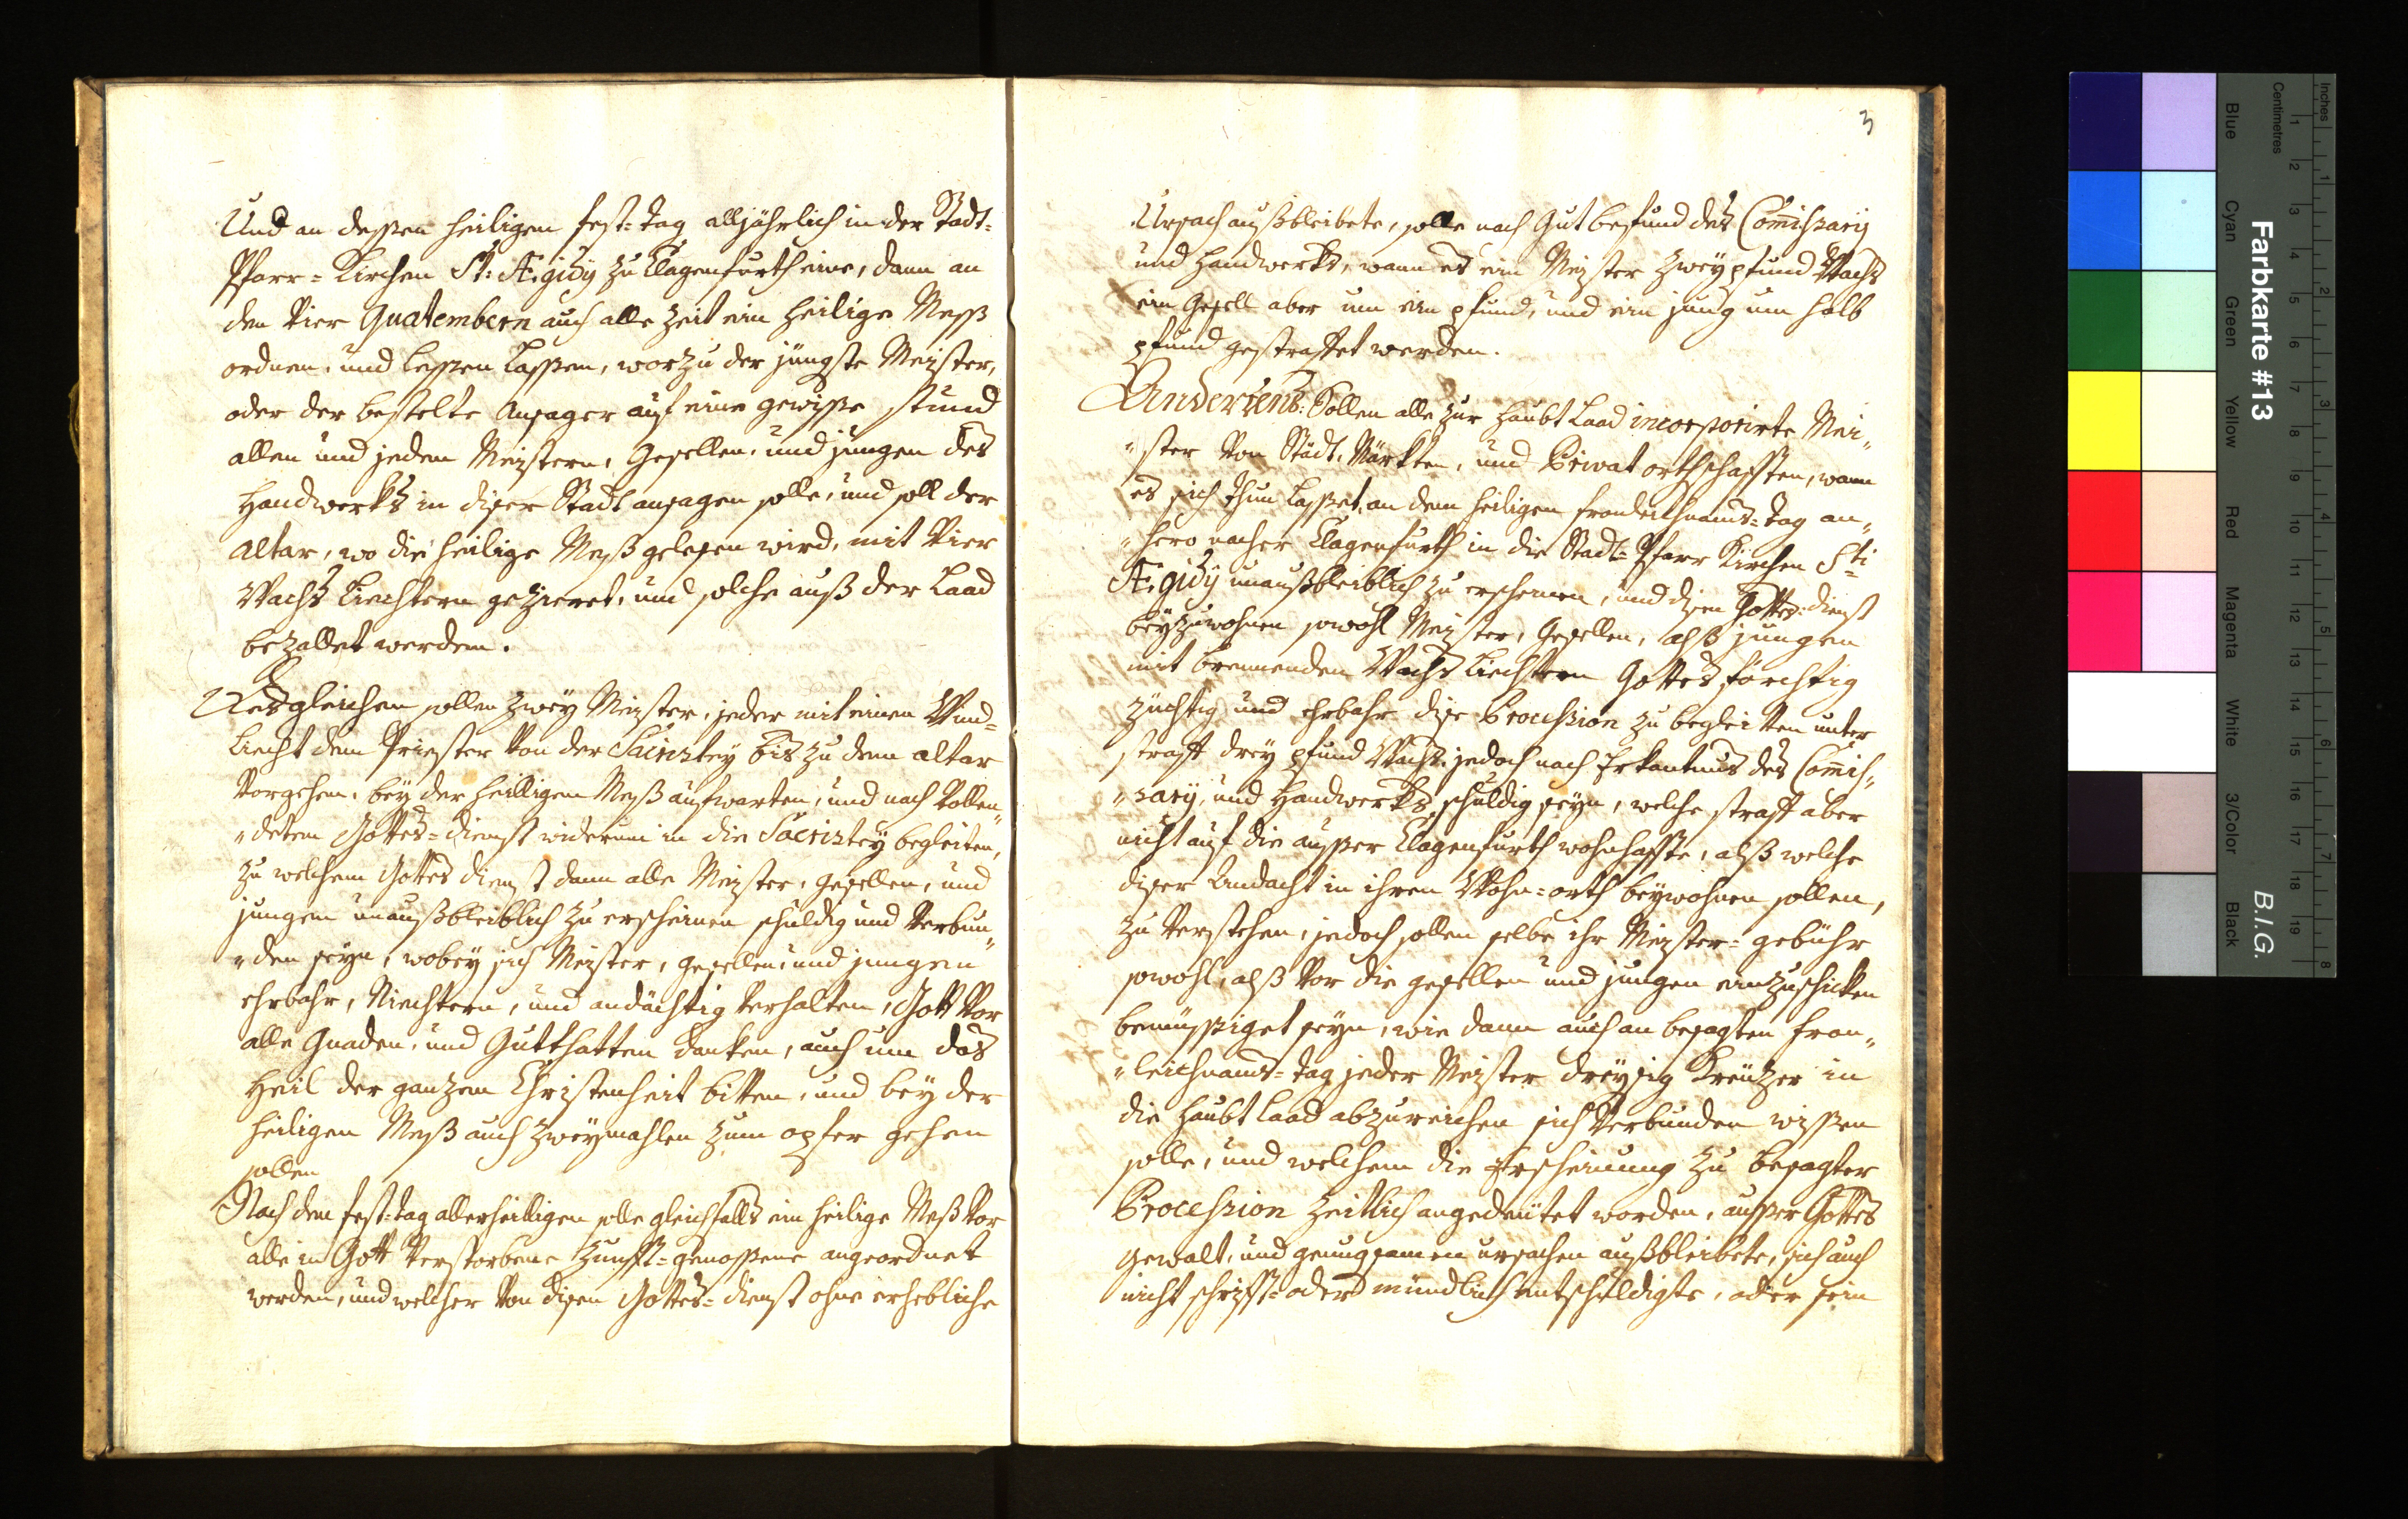 Und an dessen heiligen fest=tag alljährlich in der Stadt=
Pfarr=Kirchen St: Ægidy zu Clagenfurth eine, dann an
den Vier Quatembern auch alle Zeit ein heilige Mess
ordnen, und lessen lassen, worzu der jüngste Meister,
oder der bestelte Ansager auf eine gewisse stund
allen und jeden Meistern, Gesellen, und jungen des
Handwerks in diser Stadt ansagen solle, und soll der
Altar, wo die heilige Mess gelesen wird, mit Vier
Wachs Liechtern gezieret, und solche auß der Laad
bezallet werden.
Desgleichen sollen zwey Meister, jeder mit einen Wind=
liecht dem Priester von der Sacristey bis zu dem altar
Vorgehen, bey der heilligen Meß aufwarten, und nach Vollen„
„detem Gottes=dienst widerum in die Sacristey begleiten,
zu welchem Gottes dienst dann alle Meister, gesellen, und
jungen unaußbleiblich zu erscheinen schuldig und Verbun„
„den seyn, wobey sich Meister, gesellen, und jungen
ehrbahr, Niechtern, und andächtig verhalten, Gott Vor
alle Gnaden, und Gutthatten danken, auch um das
Heil der ganzen Christenheit bitten, und bey der
heiligen Meß auch zweymahlen zum opfer gehen
sollen
Nach dem fest=tag allerheilligen solle gleichfalls ein heilige Meß Vor
alle in Gott Verstorbene Zunfft=genossene angeordnet
werden, und welcher Von disen Gottes=dienst ohne erhebliche
3
Ursach außbleibete, solle nach Gutbefund des Com̄issarij
und Handwerks, wann es ein Meister zwey pfund Wachs
ein Gesell aber um ein pfund, und ein jung um halb
pfund gestraffet werden.
Andertens: Sollen alle zur Haubt Laad incorporirte Mei„
„ster Von Städt, Märkten, und Privat orthschafften, wann
es sich thun lasset, an dem heiligen fronleichnams=tag an„
„hero nacher Clagenfurth in die Stadt=Pfarr Kirchen Sti
Ægidy unaußbleiblich zu erscheinen, und disen Gottes=dienst
beyzuwohnen sowohl Meister, Gesellen, alß jungen
mit brennenden Wachs Liechtern Gottesförchtig
züchtig und ehrbahr dise Procession zu begleitten unter
straff drey pfund Wachs, jedoch nach Erkantnus des Com̄is„
„sarij, und Handwerks schuldig seyn, welche straff aber
nicht auf die ausser Clagenfurth wohnhaffte, alß welche
diser Andacht in ihren Wohn=orth beywohnen sollen,
zu Verstehen, jedoch sollen selbe ihr Meister=gebühr
sowohl, alß Vor die gesellen und jungen einzuschicken
bemüssiget seyn, wie dann auch an besagten fron„
„leichnams=tag jeder Meister dreysig Kreutzer in
die Haubt Laad abzureichen sich Verbunden wissen
solle, und welchem die Erscheinung zu besagter
Procession zeitlich angedeutet worden, ausser Gottes
Gewalt, und genugsamen ursachen außbleibete, sich auch
nicht schrifft= oder mündlich entschuldigte, oder sein
Farbkarte #13
B.I.G.
Inches
Centimetres
1 2 3 4 5 6 7 8
1 2 3 4 5 6 7 8 9 10 11 12 13 14 15 16 17 18 19
Blue
Cyan
Green
Yellow
Red
Magenta
White
3/Color
Black